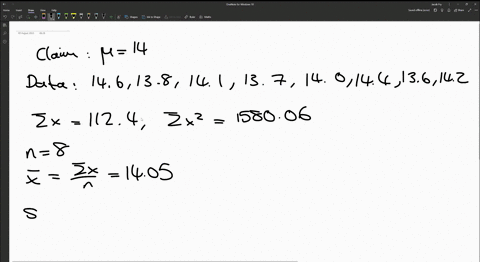 Claim: μ = 14
Data: 14.6, 13.8, 14.1, 13.7, 14.0, 14.4, 13.6, 14.2
Σx = 112.4, Σx² = 1580.06
n = 8
x̄ = Σx/n = 14.05
S